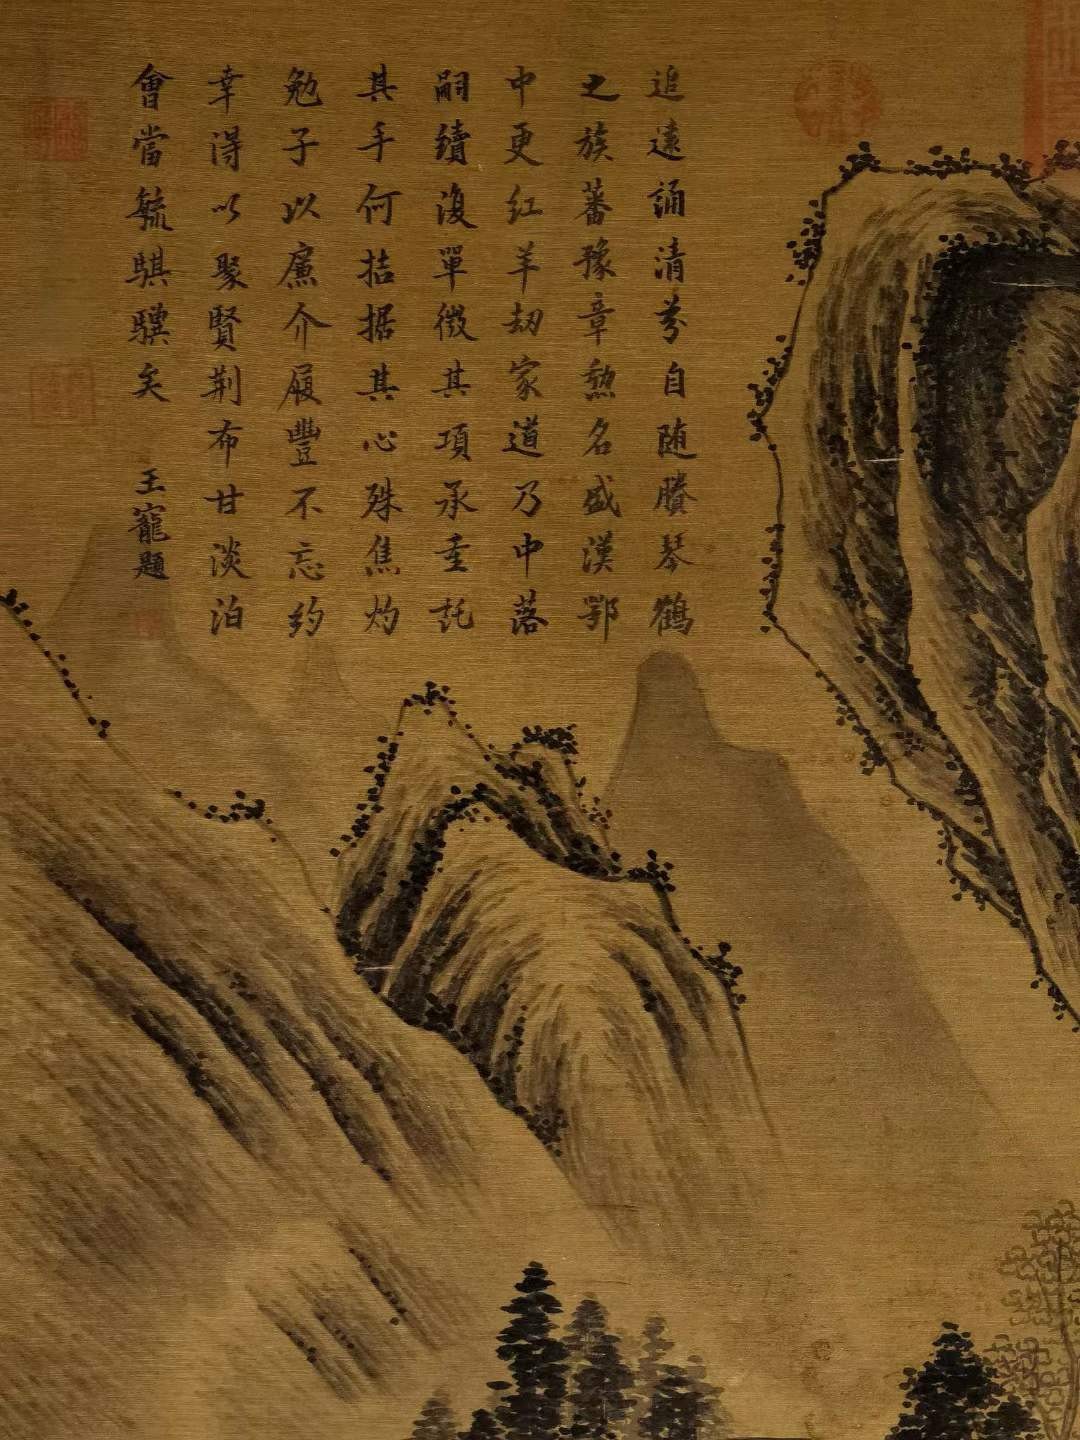 追遠誦清芬自随賸琴鶴
之族蕃豫章勲名盛漢鄂
中更红羊劫家道乃中落
嗣續復單微其項承重託
其手何拮据其心殊焦灼
勉子以廉介履豐不忘约
幸得以聚賢荆布甘淡泊
會當毓騏驥矣
王寵題